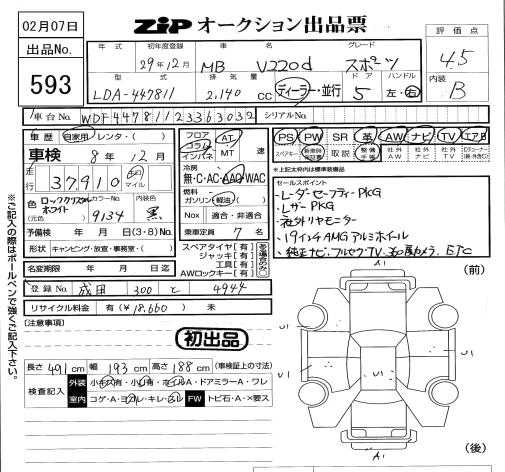 02月07日
ZIP オークション出品票
出品No.
593
年式 初年度登録 車名 グレード
29年12月 MB V220d スポーツ
型式 排気量 ドア ハンドル
LDA-447811 2,140 cc ディーラー・並行 5 左・右
評価点
4.5
内装
B
車台No. WDF44781123363032 シリアルNo.
車歴 自家用・レンタ・( )
車検 8年 12月
走行 37,910 km マイル
色 ロッククリスタルホワイト カラーNo. 内装色
(元色) 9134 黒
予備検 年 月 日 (3・8)No.
形状 キャンピング・放宣・事務室・( )
名変期限 年 月 日迄
登録No. 成田 300 と 4944
リサイクル料金 有(¥18,660) 未
フロア コラム インパネ AT MT 速
冷房 無・C・AC・AAC・WAC
燃料 ガソリン・軽油・( )
Nox 適合・非適合
乗車定員 7名
スペアタイヤ【有】
ジャッキ【有】
工具【有】
AWロックキー【有】
PS PW SR 革 AW ナビ TV エアB
スペアキー 新車時保証書 取説 整備手帳 社外AW 社外ナビ 社外TV
※上記太枠内は標準装備品
セールスポイント
・レーダーセーフティーPKG
・レザーPKG
・社外リヤモニター
・19インチAMGアルミホイール
・純正ナビ、フルセグTV、360度カメラ、ETC
※ご記入の際はボールペンで強くご記入下さい。
[注意事項]
初出品
長さ 491cm 幅 193cm 高さ 188cm (車検証上の寸法)
検査記入 外装 小キズ有・小凹有・ホイルA・ドアミラーA・ワレ
室内 コゲ・A・ヨゴレ・キレ・スレ FW トビ石・A・×要ス
(前)
A1
U1
U1
U1
A1
(後)